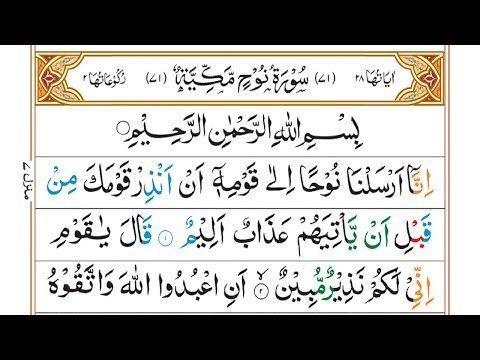 اٰيَاتُهَا ٢٨ (٧١) سُوْرَةُ نُوْحٍ مَّكِّيَّةٌ (٧١) رُكُوْعَاتُهَا ٢
بِسْمِ اللّٰهِ الرَّحْمٰنِ الرَّحِيْمِ
اِنَّاۤ اَرْسَلْنَا نُوْحًا اِلٰى قَوْمِهٖۤ اَنْ اَنْذِرْ قَوْمَكَ مِنْ
قَبْلِ اَنْ يَّاْتِيَهُمْ عَذَابٌ اَلِيْمٌ ۝١ قَالَ يٰقَوْمِ
اِنِّيْ لَكُمْ نَذِيْرٌ مُّبِيْنٌ ۝٢ۙ اَنِ اعْبُدُوا اللّٰهَ وَاتَّقُوْهُ
منزل ٧